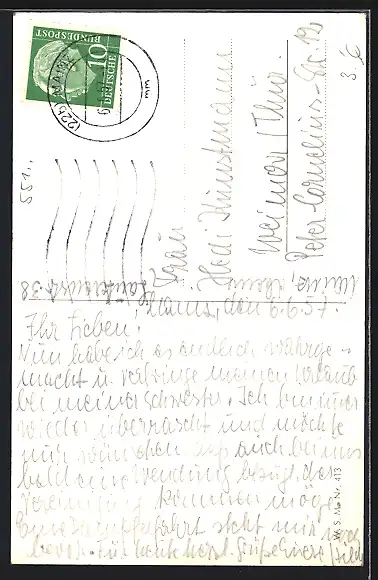 DEUTSCHE
BUNDESPOST
10
(22b) MAINZ
mm
3.-€
551..
Frau
Hedi Kunstmann
Weimar / Thür.
Peter-Cornelius-Str. 12
38
Mainz, den 6.9.57.
Ihr Lieben!
Nun habe ich es endlich wahrge-
macht u. verbringe meinen Urlaub
bei meiner Schwester. Ich bin immer
wieder überrascht und möchte
nur wünschen, daß auch bei uns
bald eine Wendung bezügl. der
Vereinigung kommen möge.
Eine Dampferfahrt steht mir noch
bevor. Für heute herzl. Grüße Eure
W. S. Mz Nr. 413